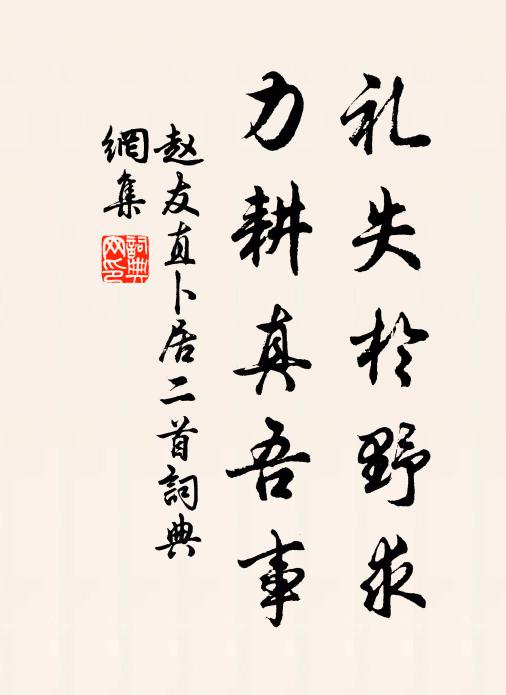 礼失於野求
力耕真吾事
赵友直卜居二首詞典
網集
詞典
网印